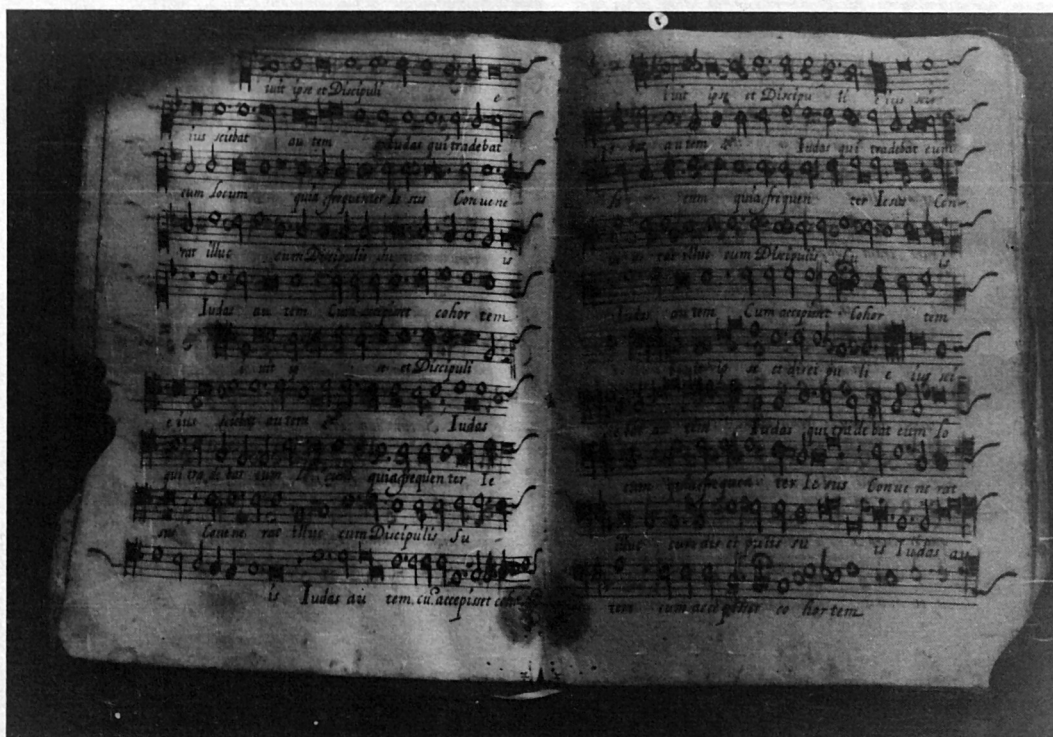 iuit ipse et Discipuli e-
ius sciebat au tem Iudas qui tradebat
eum Locum quia frequenter Ie sus Conuene-
rat illuc cum Discipulis su is
Iudas au tem Cum accepisset cohor tem
i uit ip se et Discipuli
e ius sciebat au tem Iudas
qui tra de bat eum lo cum quia frequen ter Ie
sus Conue ne rat illuc cum Discipulis Su
is Iudas au tem cu accepisset coho
iuit ipse et Discipu li e ius scie
bat au tem Iudas qui tradebat eum
lo cum quia frequen ter Iesus Con-
ue ne rat illuc cum Discipulis su is
Iudas au tem Cum accepisset Cohor tem
ip se et disci pu li e ius sci-
au tem Iudas qui tra de bat eum lo
cum quia frequen ter Ie sus Conue ne rat
illuc cum dis ci pulis su is Iudas au
tem cum accepisset co hor tem